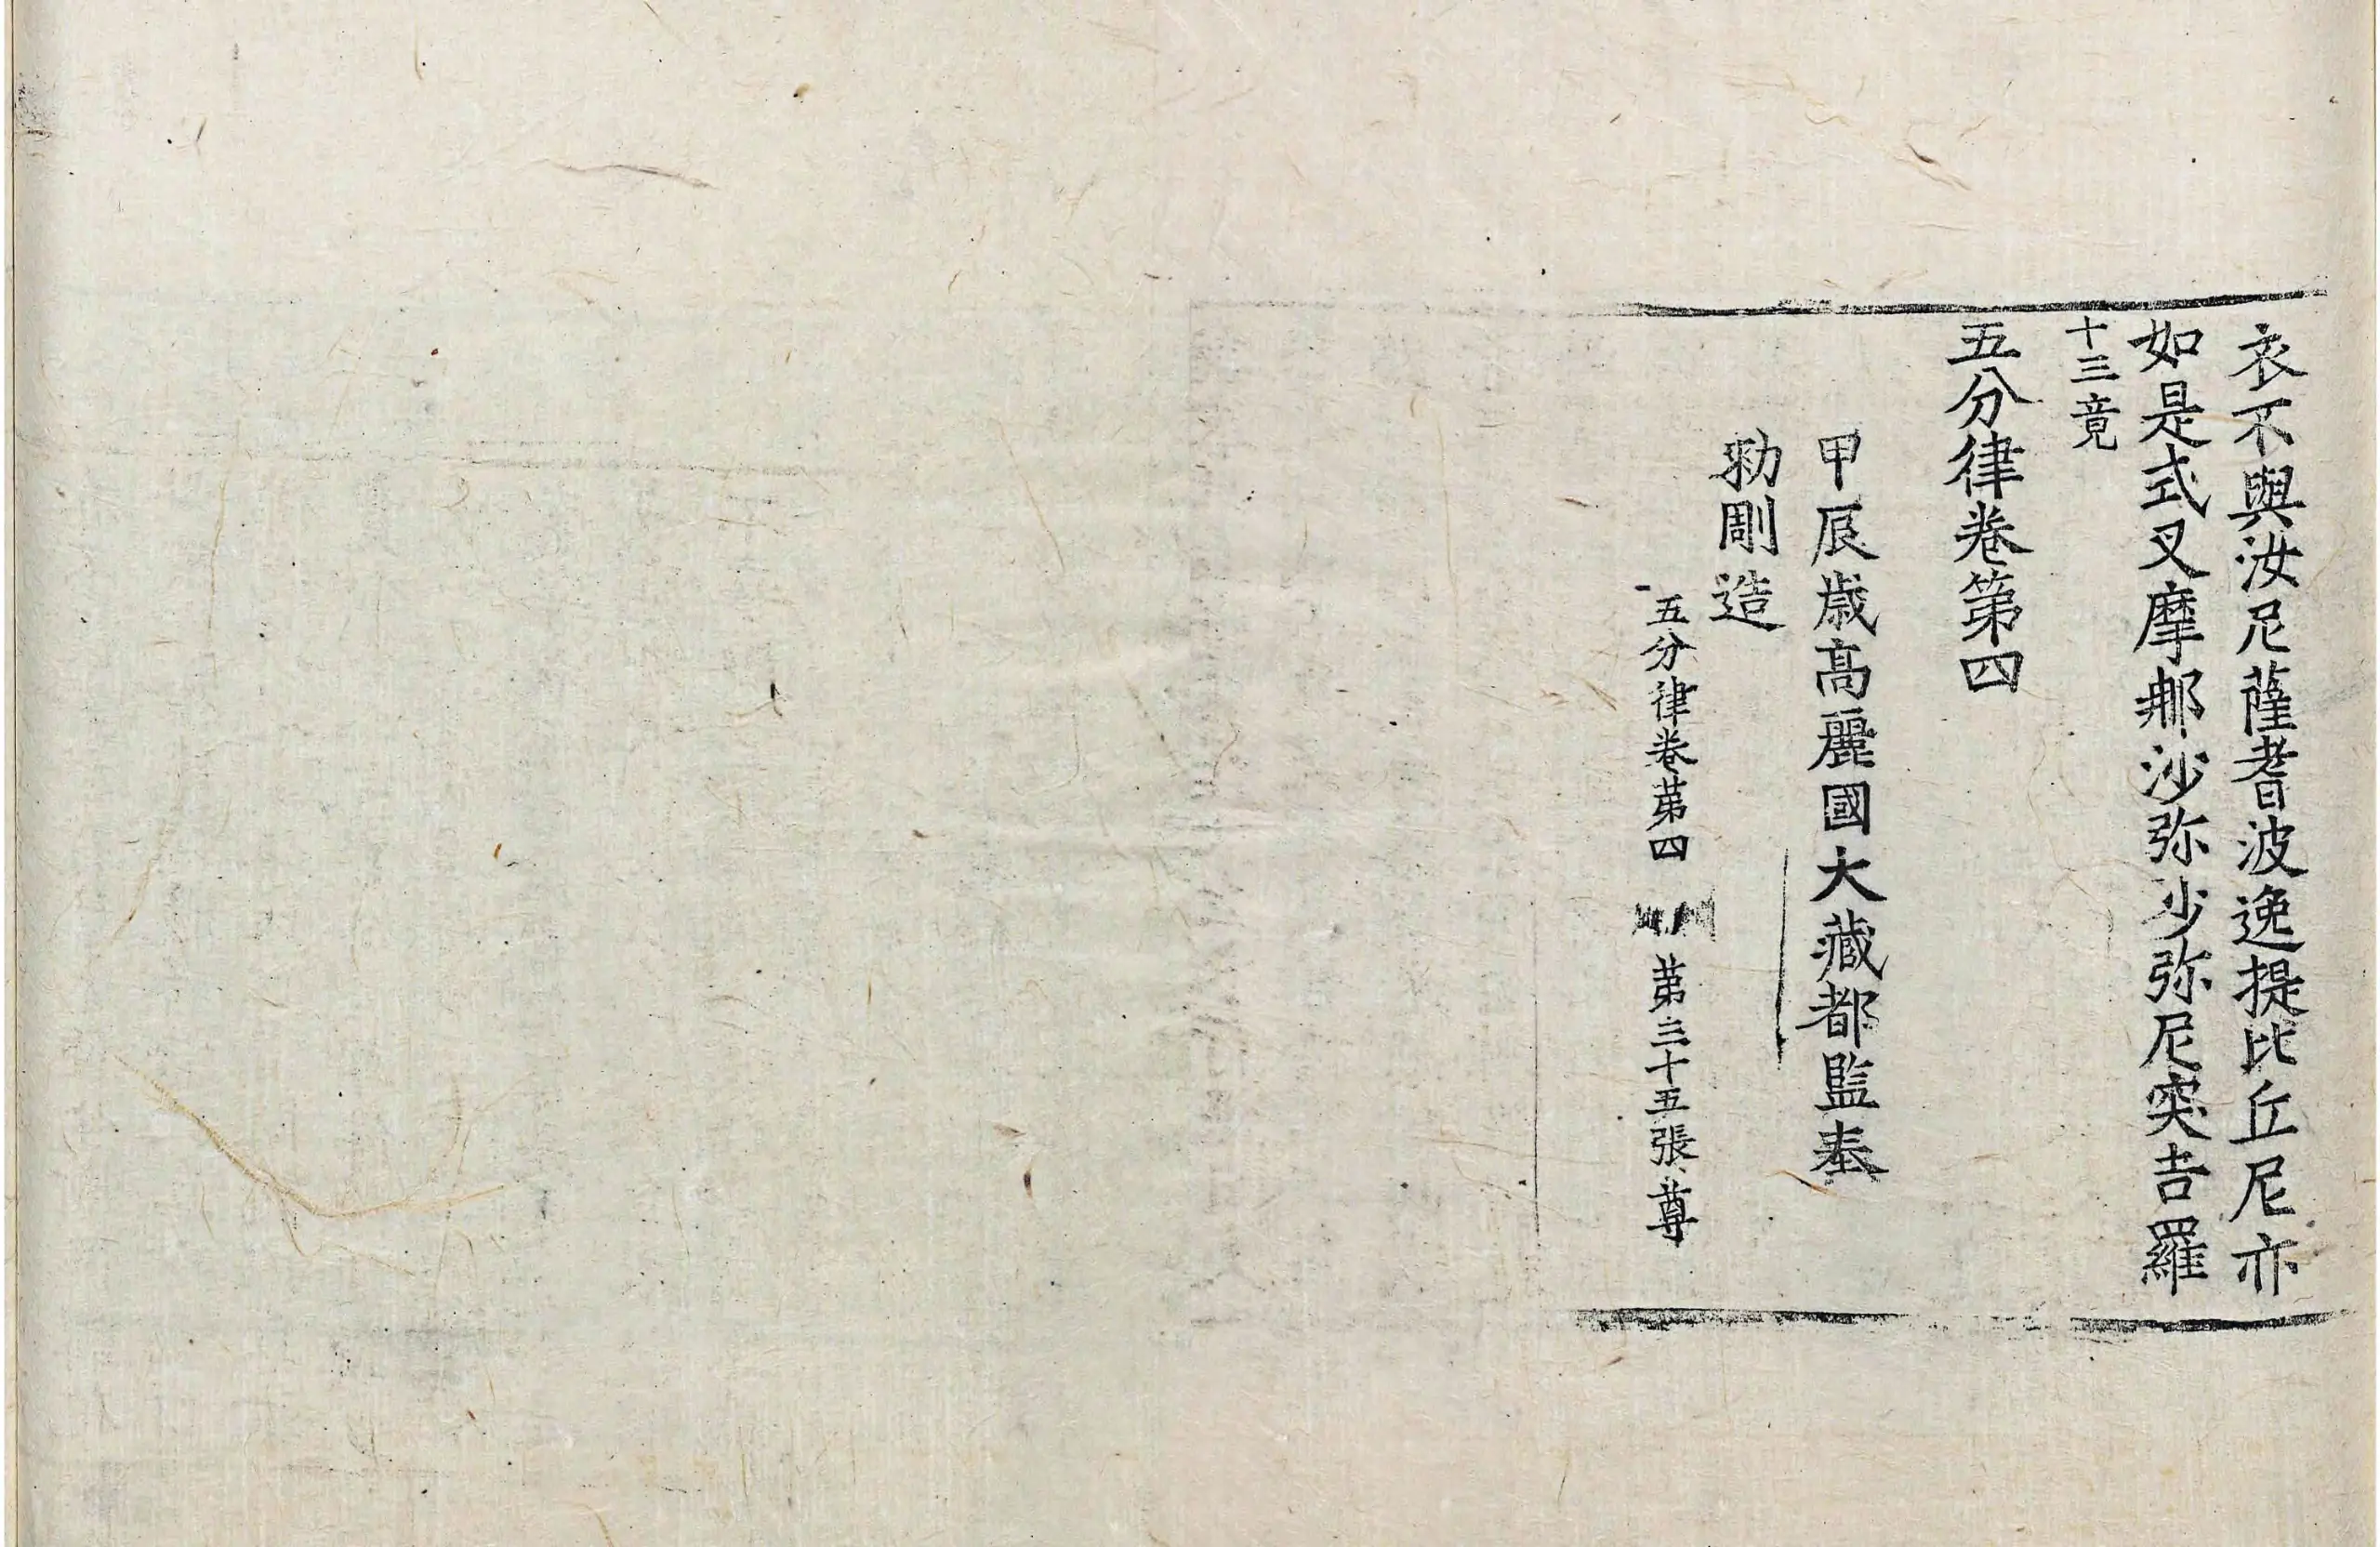 衣不與汝尼薩耆波逸提比丘尼亦
如是式叉摩那沙弥沙弥尼突吉羅
十三竟
五分律卷第四
甲辰歲高麗國大藏都監奉
勑彫造
五分律卷第四 第三十五張 尊